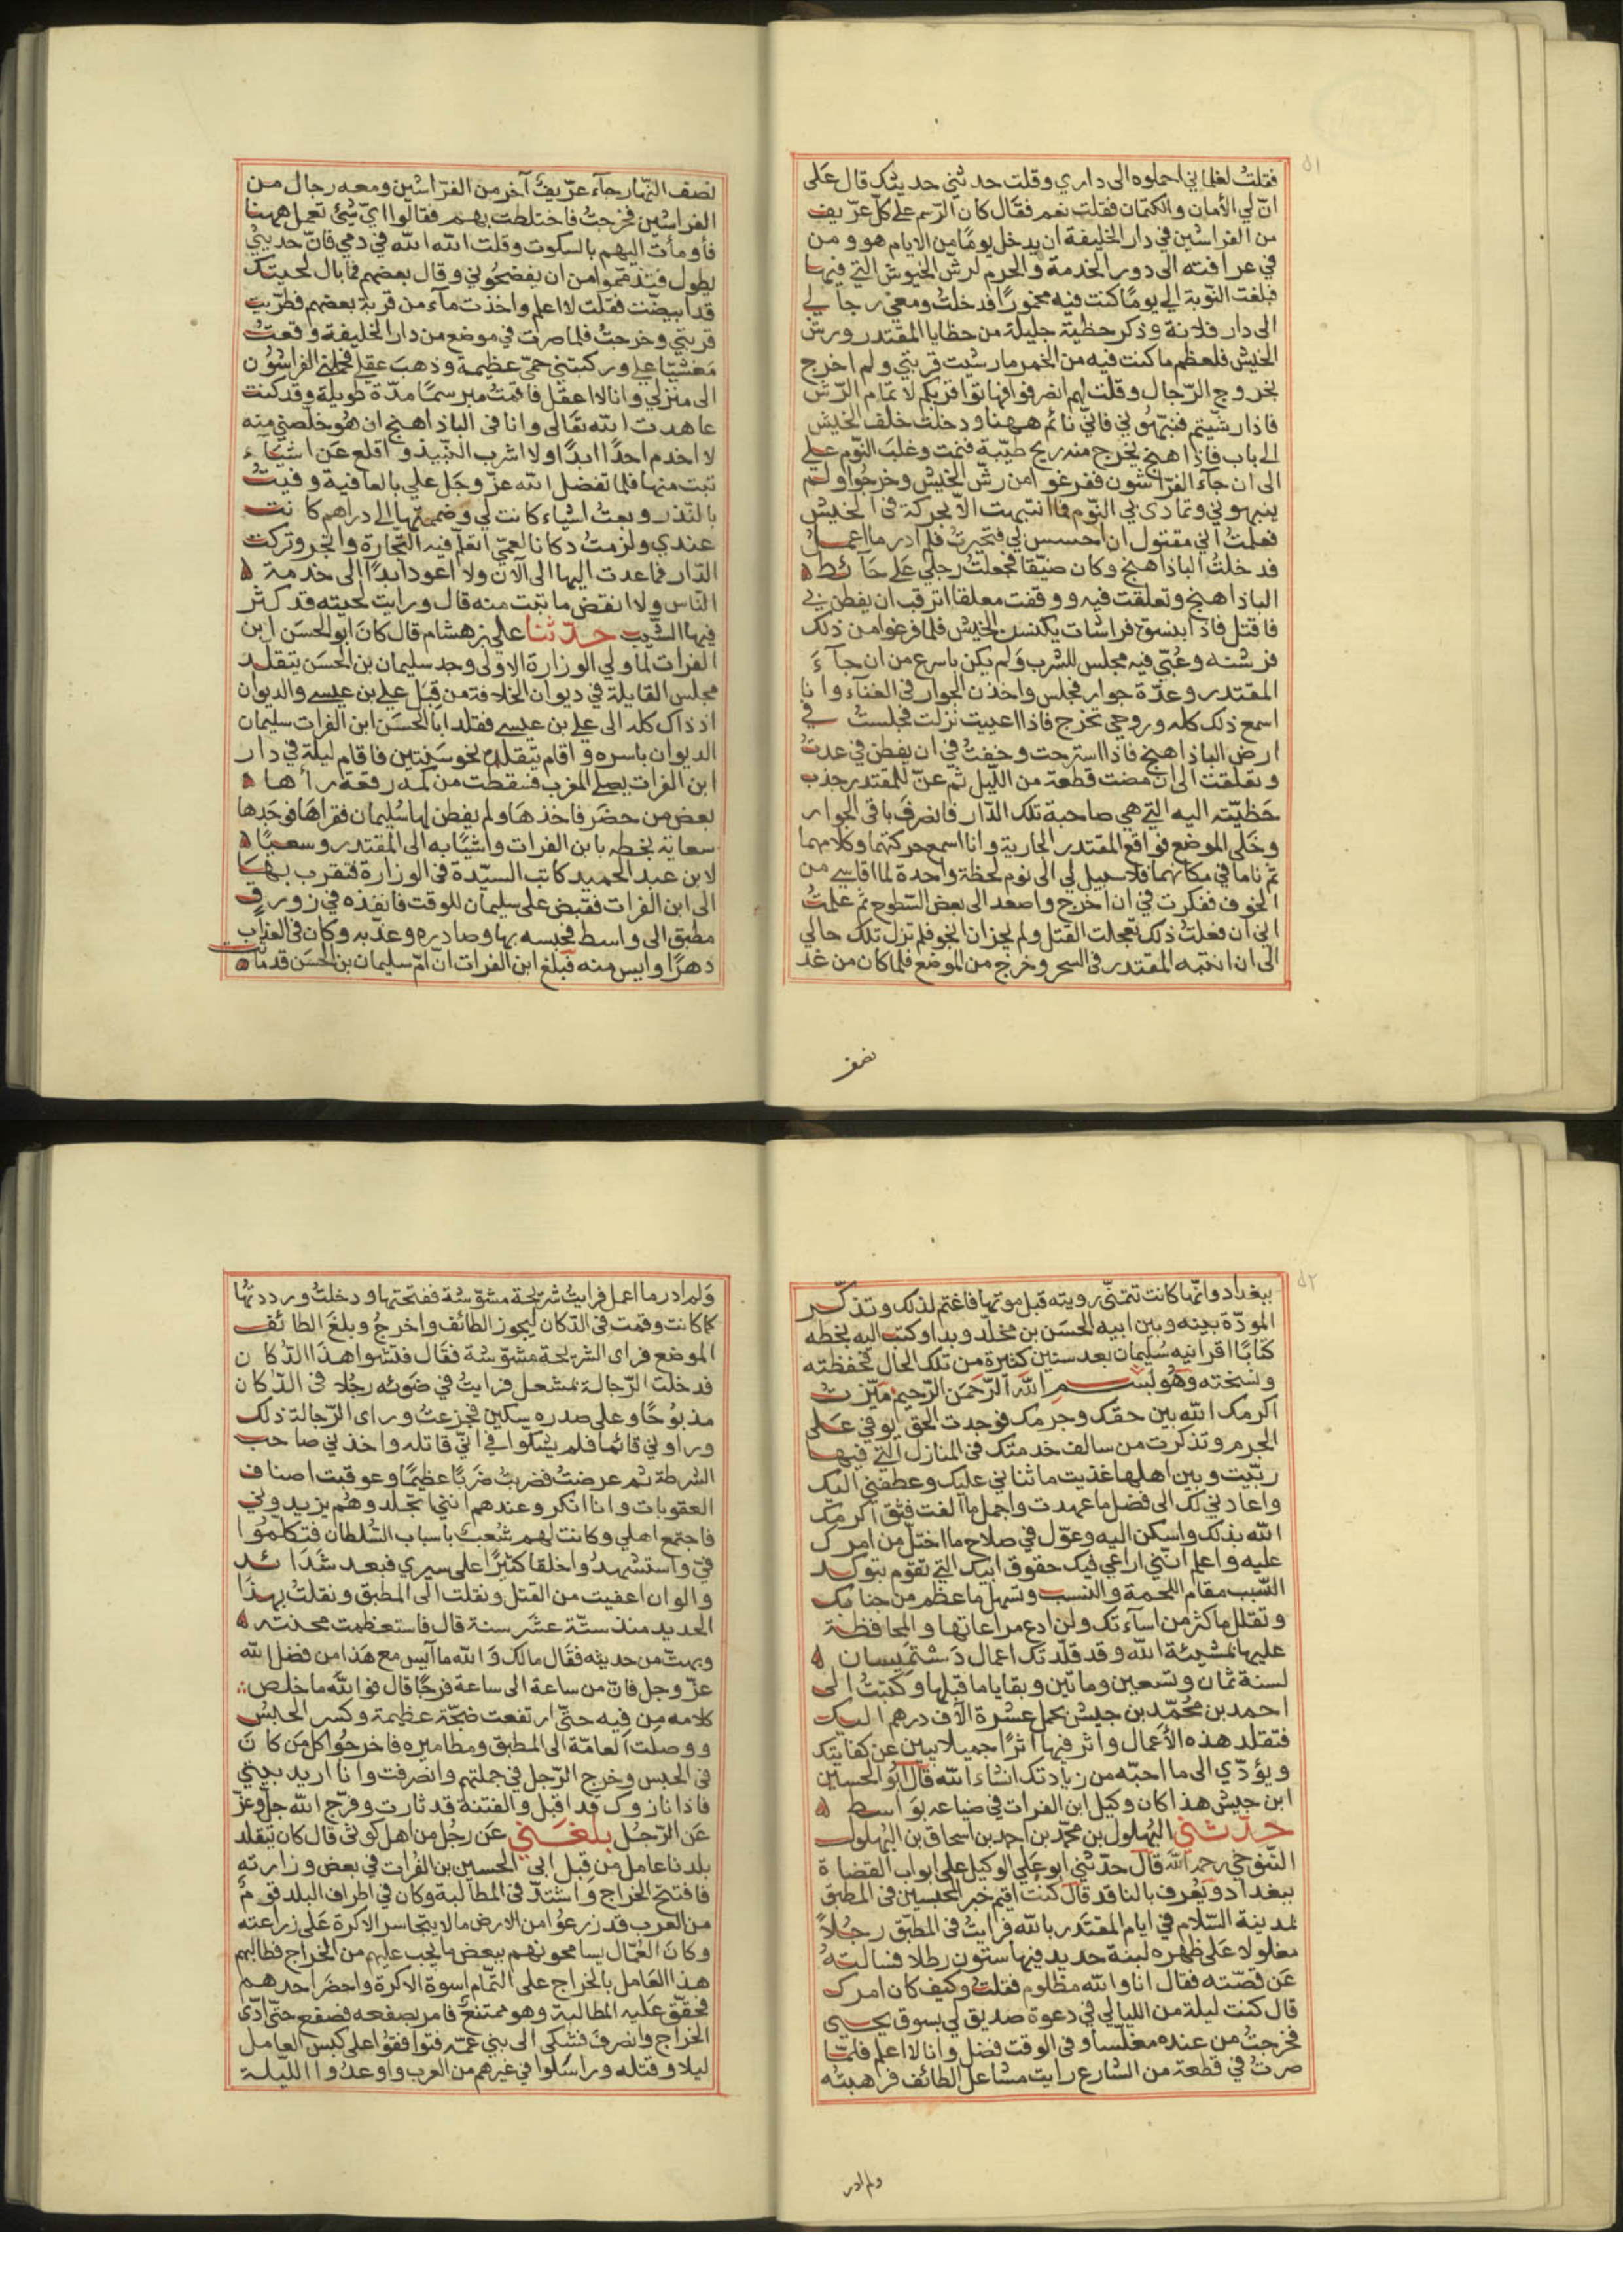 ٥١
فقلتُ لغلماني احملوه الى داري وقلت حدثني حديثك قال عَلى
انّ لي الأمان والكتمان فقلت نعم فقال كان الرّسم على كلّ عرّيف
من الفراشين في دار الخليفة ان يدخل يومًا من الايام هو ومن
في عرافته الى دور الخدمة والحرم لرشّ الخيوش التي فيها
فبلغت النّوبة الي يومًا كنت فيه مخمورًا فدخلتُ ومعي رجالي
الى دار فلانة وذكر حظيّة جليلة من حظايا المقتدر ورش
الخيش فلعظم ما كنت فيه من الخمر ما رشيت قربتي ولم اخرج
بخروج الرّجال وقلت لهم انصرفوا فهاتوا قربكم لاتمام الرّش
فاذا رشّيتم فنبّهوني فاني نائم ههنا ودخلت خلف الخيش
الى باب فاذا هنج يخرج منه ريح طيّبة فنمت وغلبَ النّوم علي
الى ان جآء الفرّاشون ففرغوا من رشّ الخيش وخرجُوا ولم
ينبهوني وتمادى بي النّوم فما انتبهت الا بحركة في الخيش
فعلمتُ اني مقتول ان احسس لي فتحيرتُ فلم ادر ما اعمل
فدخلتُ الباذاهنج وكان ضيّقا فجعلتُ رجلي عَلى حَآئط
الباذاهنج وتعلقت فيه ووقفت معلقا اترقب ان يفطن بي
فاقتل فاذا بنسوة فراشات يكنسن الخيش فلما فرغوا من ذلك
فرشنه وعُبّي فيه مجلس للشرب وَلم يكن باسرع من ان جآءَ
المقتدر وعدّة جوار فجلس واخذن الجوار في الغنآء وانا
اسمع ذلك كله وروحي تخرج فاذا اعييت نزلت فجلست في
ارض الباذاهنج فاذا استرحت وخفتُ في ان يفطن في عدتُ
وتعلقت الى ان مضت قطعة من اللّيل ثم عنّ للمقتدر جذب
حَظيّته اليه التي هي صاحبة تلك الدّار فانصرفَ باقي الجوار
وخلى الموضع فواقع المقتدر الجارية وانا اسمع حركتهما وكلامهما
ثم ناما في مكانهما فلا سبيل لي الى نوم لحظة واحدة لما اقاسي من
الخوف ففكرت في ان اخرج واصعد الى بعض السّطوح ثم علمتُ
اني ان فعلتُ ذلك تعجلت القتل ولم يجز ان انجو فلم تزل تلك حالي
الى ان انتبه المقتدر في السحر وخرج من الموضع فلما كان من غد
نصف
نصف النّهار جآء عرّيفٌ آخر من الفرّاشين ومعه رجال من
الفراشين فخرجتُ فاختلطت بهم فقالوا ايّ شئ تعمل ههنا
فأومأت اليهم بالسكوت وقلت الله الله في دمي فانّ حديثي
يطول فتذمّموا من ان يفضحُوني وقال بعضهم فما بال لحيتك
قد ابيضّت فقلت لا اعلم واخذت مآء من قربة بعضهم فطرّبت
قربتي وخرجتُ فلما صرت في موضع من دار الخليفة وقعتُ
مَغشيّا علي وركبتني حمّى عظيمة وذهبَ عقلي فحملني الفراشُون
الى منزلي وانا لا اعقل فاقمتُ مبرسمًا مدّة طويلة وقد كنت
عاهدت الله تعَالى وانا في الباذاهنج ان هُو خلّصني منه
لا اخدم احدًا ابدًا ولا اشرب النّبيذ واقلع عَن اشيَآءَ
تبت منها فلما تفضل الله عزّ وجَل علي بالعافية وفيتُ
بالنّذر وبعتُ اشياء كانت لي وضممتها الى دراهم كانت
عندي ولزمتُ دكانا لعمّي اتعلم فيه التجارة واتّجر وتركت
الدّار فما عدت اليها الى الآن ولا اعود ابدًا الى خدمة
النّاس ولا انقض ما تبت منه قال ورايت لحيته قد كثر
فيها الشّيب حدّثنا علي بن هشام قال كانَ ابو الحسَن ابن
الفرات لما ولي الوزارة الاولى وجد سليمان بن الحسَن يتقلد
مجلس القابلة في ديوان الخلافة من قِبَل علي بن عيسى والديوان
اذ ذاك كله الى علي بن عيسى فقلد ابا الحسَن ابن الفرات سليمان
الديوان باسره واقام يتقلده نحو سَنتين فاقام ليلة في دار
ابن الفرات يصلي المغرب فسقطت من كمه رقعة رأها
بعض من حضَر فاخذهَا ولم يفطن لها سُليمان فقراهَا فوجَدها
سعاية بخطه بابن الفرات واشيًا به الى المقتدر وسعيًا
لابن عبد الحميد كاتب السيّدة في الوزارة فتقرب بهَا
الى ابن الفرات فقبض على سليمان للوقت فانفذه في زورق
مطبق الى واسط فحبسه بها وصادره وعذّبه وكان في العذاب
دهرًا وايس منه فبلغ ابن الفرات ان امّ سليمان بن الحسَن قد ماتت
٥٢
ببغداد وانّها كانت تتمنّى رويته قبل موتها فاغتم لذلك وتذكّر
المودّة بينه وبين ابيه الحسَن بن مخلّد وبدا وكتب اليه بخطه
كتابًا اقرانيه سُليمان بعد سنين كثيرة من تلك الحال فحفظته
ونسخته وهُو بسم الله الرّحمَن الرّحيم ميّزت
اكرمك الله بين حقك وجرمك فوجدت الحق يوفي عَلى
الجرم وتذكرت من سالف خدمتك في المنازل التي فيها
ربّيت وبين اهلها غذيت ما ثناني عليك وعطفني اليك
واعادني لك الى فضل ما عهدت واجمل ما الفت فثق اكرمك
الله بذلك واسكن اليه وعوّل في صلاح ما اختلّ من امرك
عليه واعلم انّني اراعي فيك حقوق ابيك التي تقوم بتوكد
السّبب مقام اللحمة والنسب وتسهل ما عظم من جنايتك
وتقلل ما كثر من اسآءتك ولن ادع مراعاتها والمحافظة
عليها بمشيئة الله وقد قلّدتك اعمال دَسْتمَيسان
لسنة ثمان وتسعين ومائتين وبقايا ما قبلها وكتبتُ الى
احمد بن محُمّد بن جيش بحمل عشرة الآف درهم اليك
فتقلد هذه الأعمال واثر فيها اثرًا جميلا يبين عن كفايتك
ويؤدّي الى ما احبّه من زيادتك انشاء الله قال ابُو الحسين
ابن جيش هذا كان وكيل ابن الفرات في ضياعه بوَاسط
حدّثني البُهلول بن محمّد بن احمد بن اسحاق بن البُهلول
التّنوخي رحمه الله قال حدّثني ابو علي الوكيل على ابواب القضاة
ببغداد ويُعرف بالناقد قال كنت اقيم خبر المحبسين في المطبق
لمدينة السّلام في ايام المقتَدر بالله فرايتُ في المطبّق رجُلاً
مغلولا عَلى ظهره لبنة حديد فيها ستون رطلا فسالته
عَن قصّته فقال انا والله مظلوم فقلتُ وكيف كان امرك
قال كنت ليلة من الليالي في دعوة صديق لي بسوق يحيى
فخرجتُ من عنده مغلّسا وفي الوقت فضل وانا لا اعلم فلمّا
صرتُ في قطعة من الشارع رايت مشاعل الطائف فرهبته
ولم ادر
وَلم ادر ما اعمل فرايتُ شريحة مشوّشة ففتحتها ودخلتُ ورددتها
كما كانت وقمت في الدّكان ليجوز الطائف واخرجُ وبلغَ الطائف
الموضع فراى الشريحة مشوّشة فقال فتشوا هذا الدّكان
فدخلت الرّجالة بمشعل فرايتُ في ضَوئه رجُلا في الدّكان
مذبُوحًا وعلى صدره سكين فجزعتُ وراى الرّجالة ذلك
وراوني قائما فلم يشكوا في انّي قاتله واخذني صاحب
الشرطة ثم عرضتُ فضربتُ ضربًا عظيمًا وعوقبت اصناف
العقوبات وانا انكر وعندهم انني اتجلد وهُم يزيدوني
فاجتمع اهلي وكانت لهم شُعبٌ باسباب السُّلطان فتكلّمُوا
فيّ واستشهدُوا خلقا كثيرًا على سيري فبعد شَدَائد
والوان اعفيت من القتل ونقلت الى المطبق ونقلتُ بهذا
الحديد منذ ستّة عشَر سنة قال فاستعظمت محنته
وبهتّ من حديثه فقال مالك وَالله ما آيس مع هَذا من فضل الله
عزّ وجل فانّ من ساعة الى ساعة فرجًا قال فوالله ما خلص
كلامه مِن فيه حتّى ارتفعت ضجّة عظيمة وكسر الحبْس
ووصلت العامّة الى المطبق ومطاميره فاخرجُوا كل مَن كانَ
في الحبس وخرج الرّجل في جملتهم وانصرفت وانا اريد بيتي
فاذا نازوك قد اقبل والفتنة قد ثارت وفرّج الله جل وعزّ
عَن الرّجُل بلغَني عَن رجُل من اهل كوثى قال كان يتقلد
بلدنا عامل من قِبل ابي الحسين بن الفُرات في بعض وزارته
فافتتح الخراج واشتدّ في المطالبة وكان في اطراف البلد قومٌ
من العرب قد زرعوُا من الارض ما لا يتجاسر الاكرة عَلى زراعته
وكانَ العُمّال يسامحونهم ببعض ما يجب عليهم من الخراج فطالبهم
هذا العَامل بالخراج على التّمام اسوة الاكرة واحضَر احدهم
فحقّق عَليه المطالبة وهو ممتنع فامر بصفعه فصفع حتّى ادّى
الخراج وانصرفَ فشكى الى بني عمّه فتوافقوُا على كبس العامل
ليلا وقتله وراسَلوا في غيرهم من العرب واوعدُوا اللّيلة